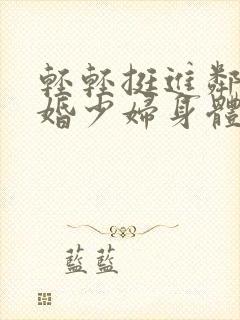 輕輕挺進鄰
婚少婦身體
藍藍